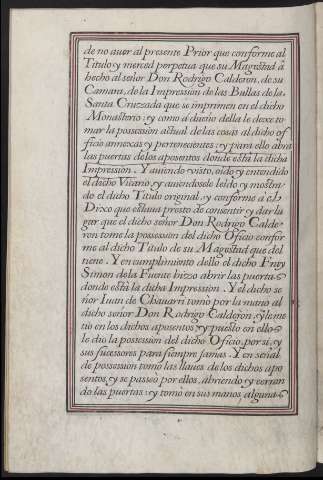 de no auer al presente Prior que conforme al
Titulo y merced perpetua que su Magestad á
hecho al señor Don Rodrigo Calderon, de su
Camara, de la Impression de las Bullas de la
Santa Cruzada que se imprimen en el dicho
Monasterio, y como a dueño della le dexe to
mar la possession actual de las cosas al dicho of
ficio annexas y pertenecientes, y para ello abra
las puertas delos aposentos donde está la dicha
Impression. Y auiendo visto, oido y entendido
el dicho Vicario, y auiendosele leido y mostra
do el dicho Titulo original, y conforme á el
Dixo que estaua presto de consentir y dar lu
gar que el dicho señor Don Rodrigo Calde
ron tome la possession del dicho Officio confor
me al dicho Titulo de su Magestad que del
tiene. Y en cumplimiento dello el dicho Fray
Simon de la Fuente hizo abrir las puertas
donde está la dicha Impression. Y el dicho se
ñor Iuan de Chauarri tomò por la mano al
dicho señor Don Rodrigo Calderon, y le me
tiò en los dichos aposentos y puesto en ellos
le dio la possession del dicho Officio, por si, y
sus sucessores para siempre jamas. Y en señal
de possession tomò las llaues de los dichos apo
sentos, y se passeò por ellos, abriendo y cerran
do las puertas: y tomò en sus manos algunas